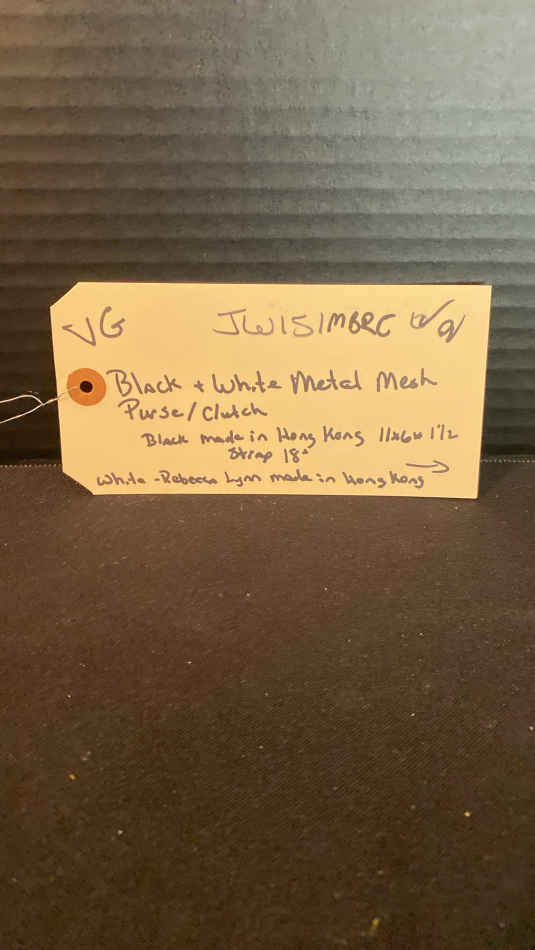 VG JW151MBRC
Black + White Metal Mesh
Purse/Clutch
Black made in Hong Kong 11x6x1 1/2
Strap 18"
White - Rebecca Lynn made in Hong Kong →